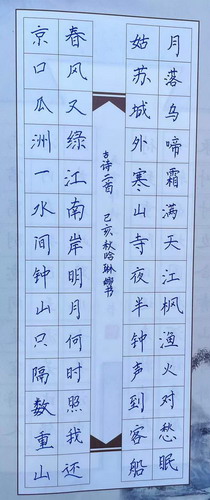 月落乌啼霜满天江枫渔火对愁眠
姑苏城外寒山寺夜半钟声到客船
古诗二首 己亥秋晗琳书
春风又绿江南岸明月何时照我还
京口瓜洲一水间钟山只隔数重山